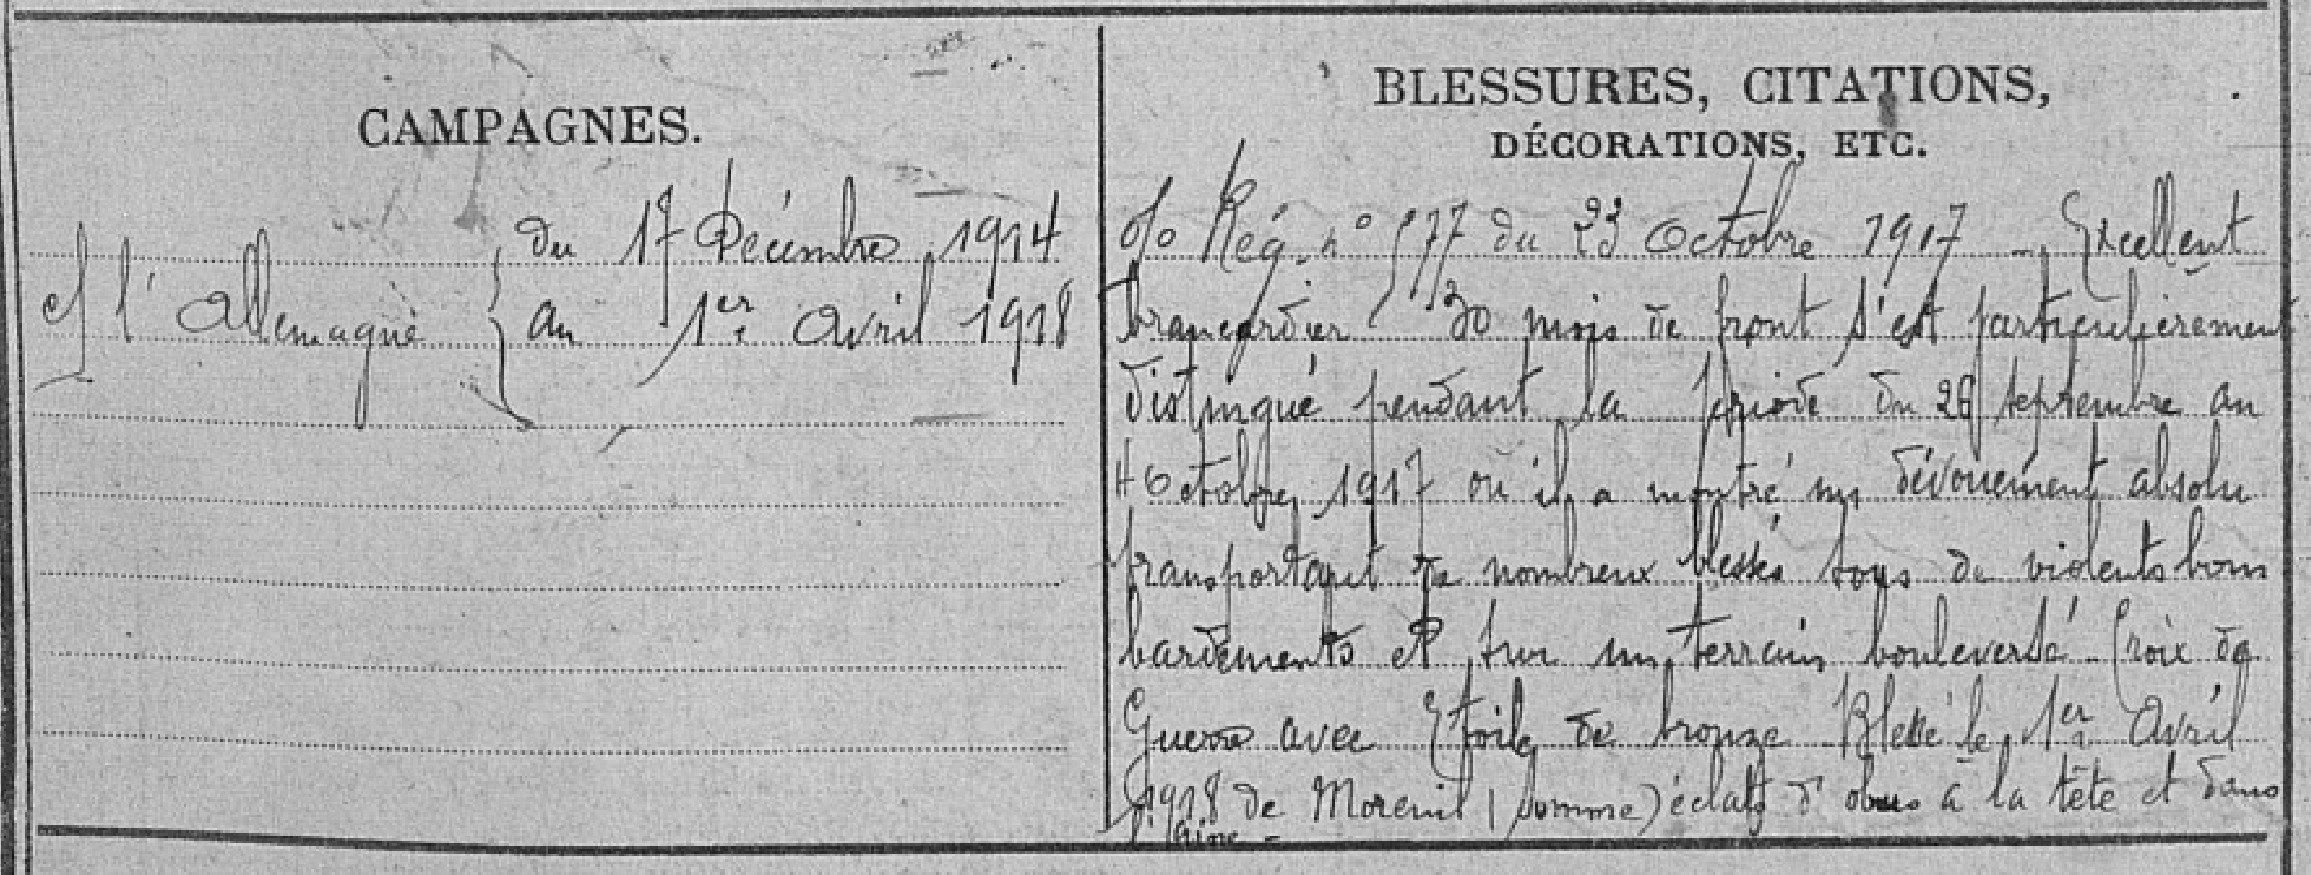 CAMPAGNES.
Ct l'Allemagne { du 17 Décembre 1914
au 1er Avril 1918
BLESSURES, CITATIONS,
DÉCORATIONS, ETC.
O/o Rég. n° 577 du 23 Octobre 1917 - Excellent
brancardier 30 mois de front s'est particulièrement
distingué pendant la période du 26 septembre au
4 Octobre 1917 où il a montré un dévouement absolu
transportant de nombreux blessés sous de violents bom
bardements et sur un terrain bouleversé Croix de
Guerre avec Etoile de bronze Blessé le 1er Avril
1918 de Moreuil (Somme) éclats d'obus à la tête et dans
l'aine -